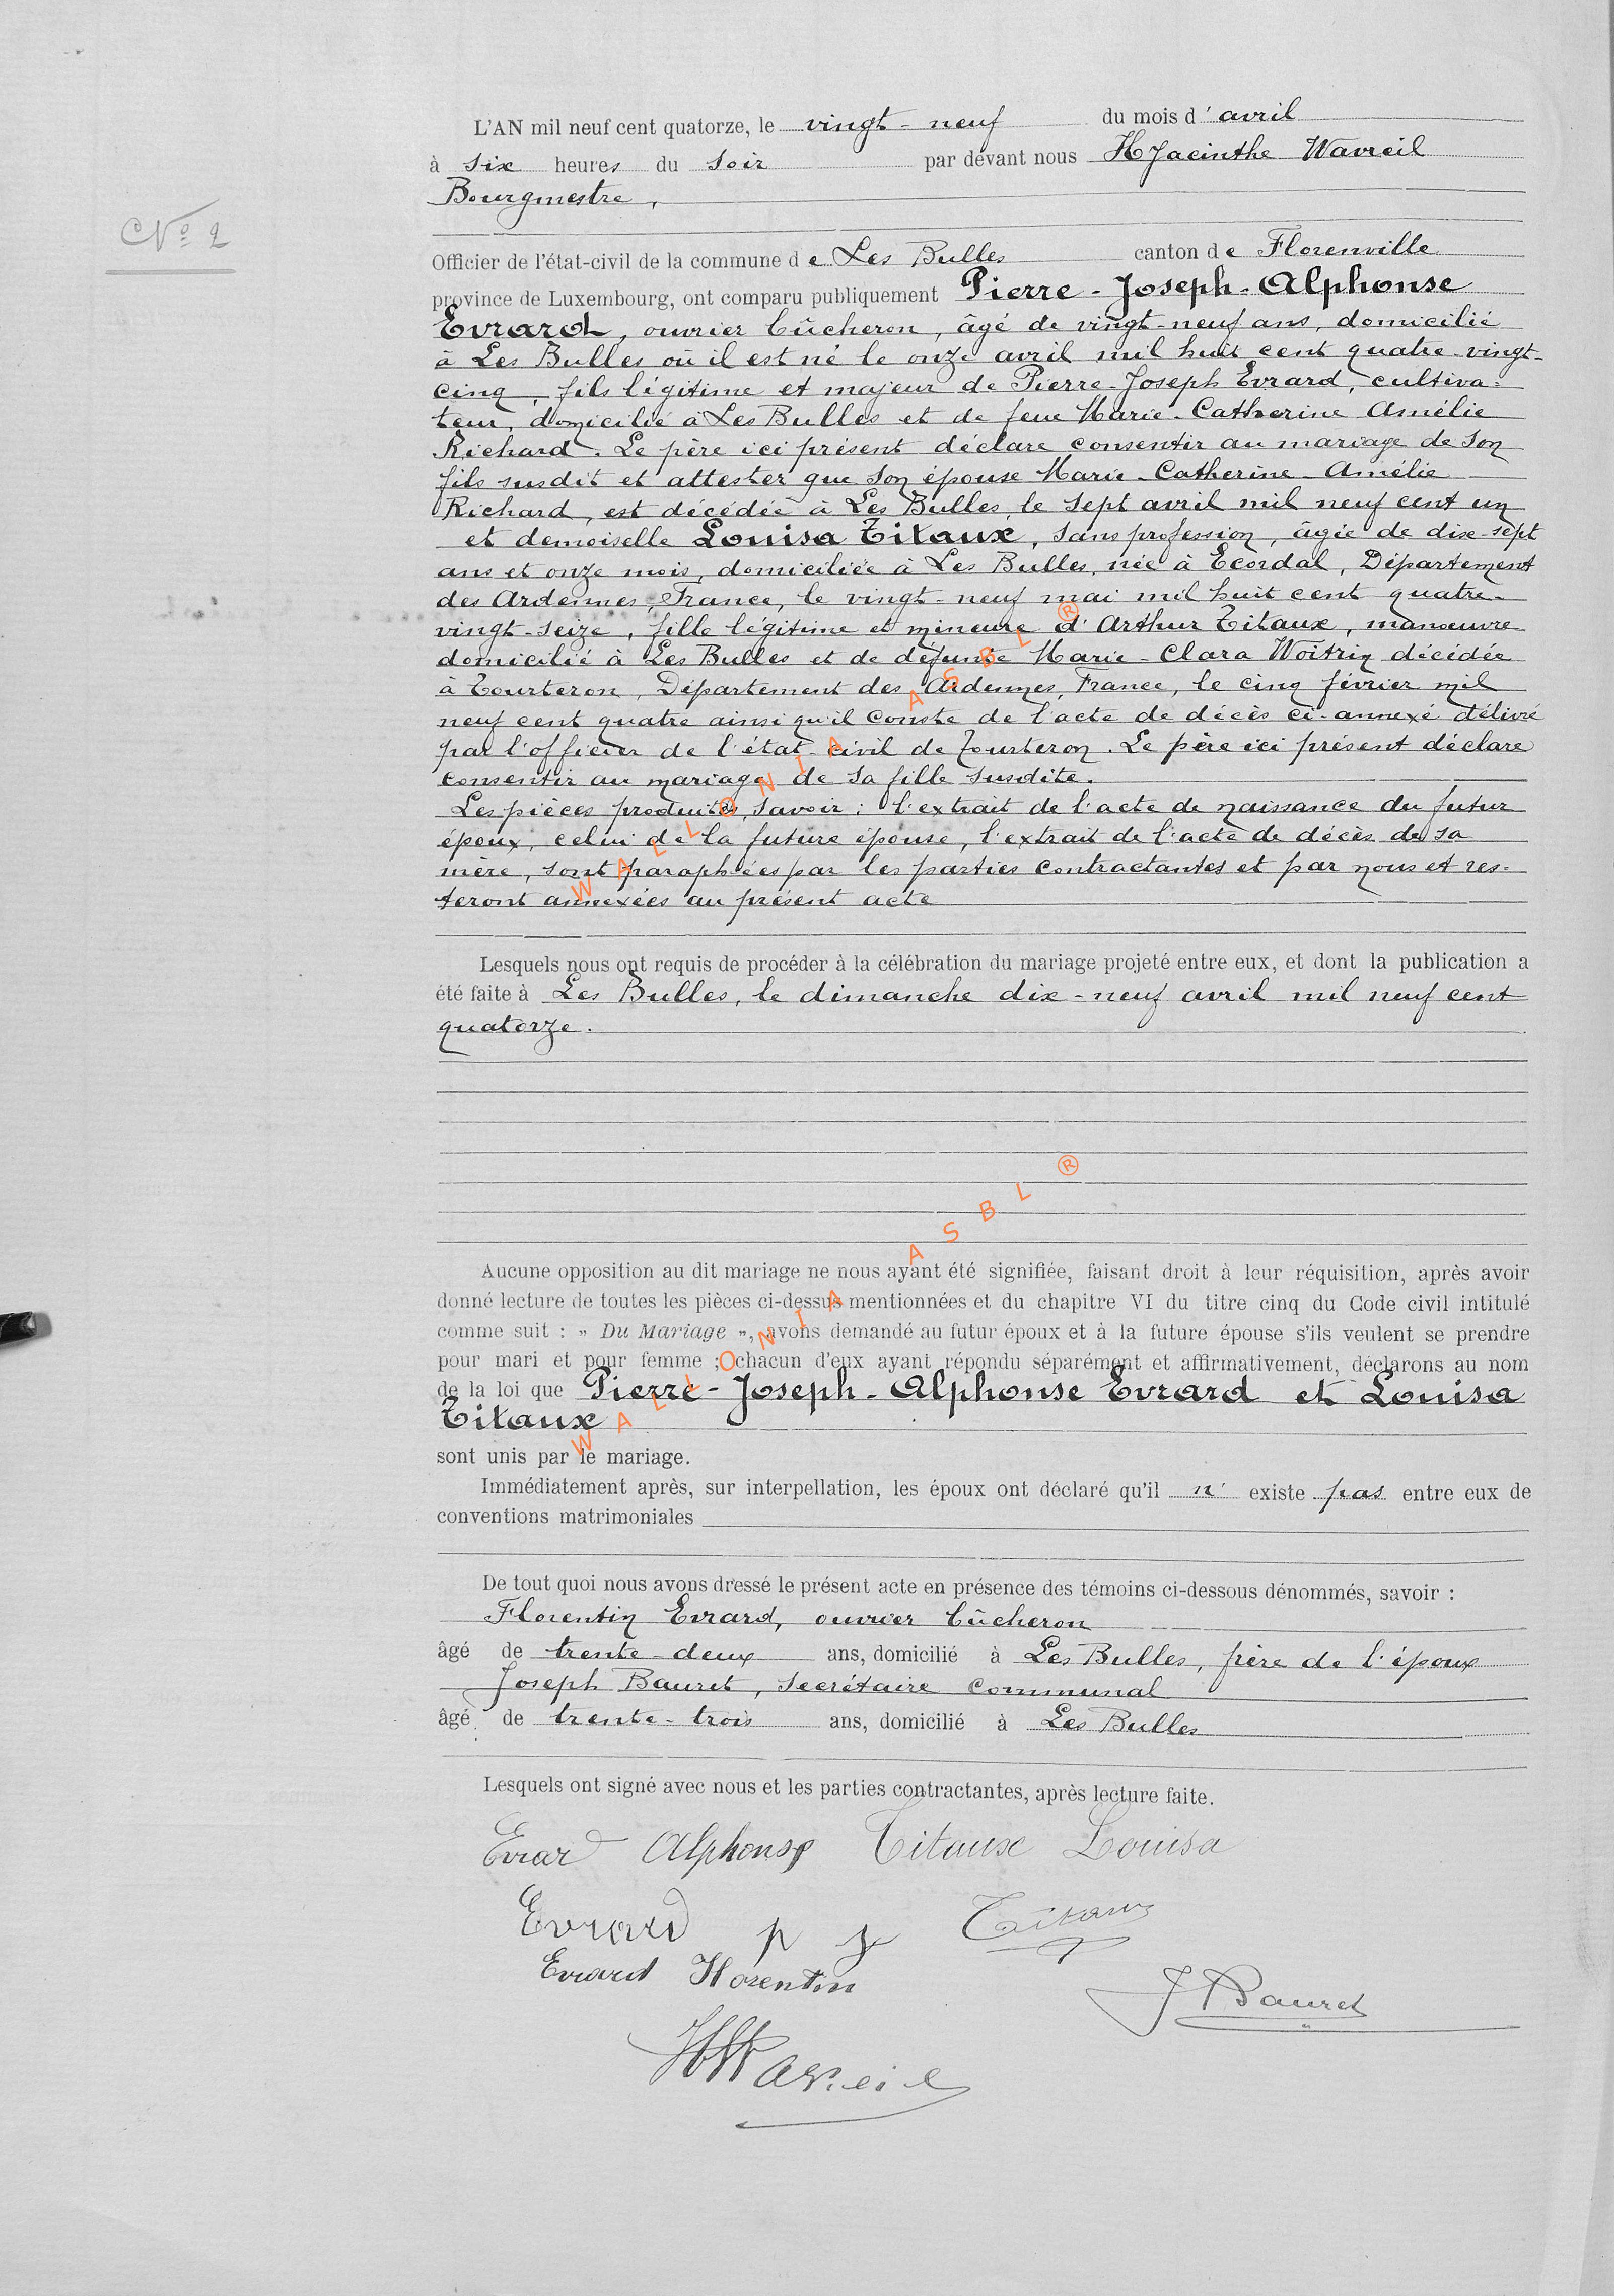 L'AN mil neuf cent quatorze, le vingt-neuf du mois d'avril
à six heures du soir par devant nous HJacinthe Wavreil
Bourgmestre,
N° 2
Officier de l'état-civil de la commune de Les Bulles canton de Florenville
province de Luxembourg, ont comparu publiquement Pierre-Joseph-Alphonse
Evrard, ouvrier bûcheron, âgé de vingt-neuf ans, domicilié
à Les Bulles où il est né le onze avril mil huit cent quatre-vingt-
cinq, fils légitime et majeur de Pierre-Joseph Evrard, cultiva-
teur, domicilié à Les Bulles et de feue Marie-Catherine Amélie
Richard. Le père ici présent déclare consentir au mariage de son
fils susdit et attester que son épouse Marie-Catherine-Amélie
Richard, est décédée à Les Bulles, le sept avril mil neuf cent un
et demoiselle Louisa Titaux, sans profession, âgée de dix-sept
ans et onze mois, domiciliée à Les Bulles, née à Ecordal, Département
des Ardennes, France, le vingt-neuf mai mil huit cent quatre-
vingt-seize, fille légitime et mineure d'Arthur Titaux, manœuvre
domicilié à Les Bulles et de défunte Marie-Clara Woitrin décédée
à Tourteron, Département des Ardennes, France, le cinq février mil
neuf cent quatre ainsi qu'il conste de l'acte de décès ci-annexé délivré
par l'officier de l'état-civil de Tourteron. Le père ici présent déclare
consentir au mariage de sa fille susdite.
Les pièces produites, savoir: l'extrait de l'acte de naissance du futur
époux, celui de la future épouse, l'extrait de l'acte de décès de sa
mère, sont paraphées par les parties contractantes et par nous et res-
teront annexées au présent acte
WALLONIA ASBL ®
Lesquels nous ont requis de procéder à la célébration du mariage projeté entre eux, et dont la publication a
été faite à Les Bulles, le dimanche dix-neuf avril mil neuf cent
quatorze.
Aucune opposition au dit mariage ne nous ayant été signifiée, faisant droit à leur réquisition, après avoir
donné lecture de toutes les pièces ci-dessus mentionnées et du chapitre VI du titre cinq du Code civil intitulé
comme suit : » Du Mariage », avons demandé au futur époux et à la future épouse s'ils veulent se prendre
pour mari et pour femme ; chacun d'eux ayant répondu séparément et affirmativement, déclarons au nom
de la loi que Pierre-Joseph-Alphonse Evrard et Louisa
Titaux
WALLONIA ASBL ®
sont unis par le mariage.
Immédiatement après, sur interpellation, les époux ont déclaré qu'il n' existe pas entre eux de
conventions matrimoniales
De tout quoi nous avons dressé le présent acte en présence des témoins ci-dessous dénommés, savoir :
Florentin Evrard, ouvrier bûcheron
âgé de trente-deux ans, domicilié à Les Bulles, frère de l'époux
Joseph Bauret, secrétaire communal
âgé de trente-trois ans, domicilié à Les Bulles
Lesquels ont signé avec nous et les parties contractantes, après lecture faite.
Evrard Alphonse Titaux Louisa
Evrard p j Titaux
Evrard Florentin
J Bauret
HWavreil